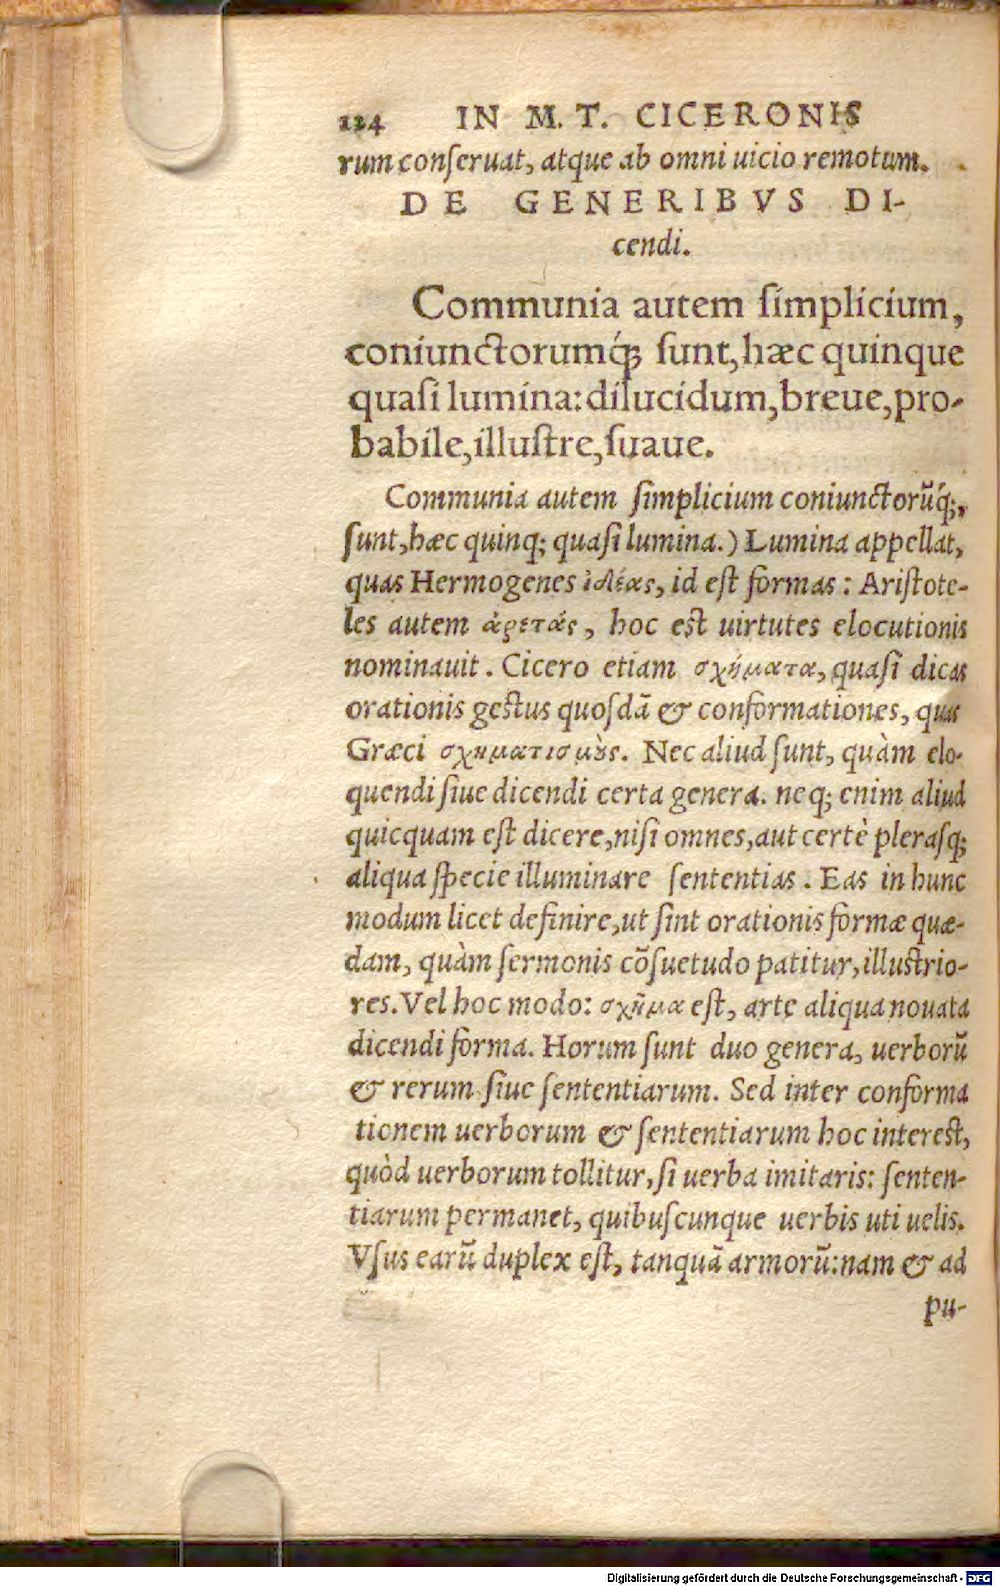 124 IN M. T. CICERONIS
rum conſeruat, atque ab omni uicio remotum.
DE GENERIBVS DI-
cendi.
Communia autem ſimplicium,
coniunctorumq́; ſunt, hæc quinque
quaſi lumina: dilucidum, breue, pro-
babile, illuſtre, ſuaue.
Communia autem ſimplicium coniunctorũq́;,
ſunt, hæc quinq; quaſi lumina.) Lumina appellat,
quas Hermogenes ἰδέας, id eſt formas: Ariſtote-
les autem ἀρετάς, hoc eſt uirtutes elocutionis
nominauit. Cicero etiam σχήματα, quaſi dicas
orationis geſtus quoſdã & conformationes, quas
Græci σχηματισμοὺς. Nec aliud ſunt, quàm elo-
quendi ſiue dicendi certa genera. neq; enim aliud
quicquam eſt dicere, niſi omnes, aut certè pleraſq;
aliqua ſpecie illuminare ſententias. Eas in hunc
modum licet definire, ut ſint orationis formæ quæ-
dam, quàm ſermonis cõſuetudo patitur, illuſtrio-
res. Vel hoc modo: σχῆμα eſt, arte aliqua nouata
dicendi forma. Horum ſunt duo genera, uerborũ
& rerum ſiue ſententiarum. Sed inter conforma
tionem uerborum & ſententiarum hoc intereſt,
quòd uerborum tollitur, ſi uerba imitaris: ſenten-
tiarum permanet, quibuſcunque uerbis uti uelis.
Vſus earũ duplex eſt, tanquã armorũ: nam & ad
pu-
Digitalisierung gefördert durch die Deutsche Forschungsgemeinschaft - DFG